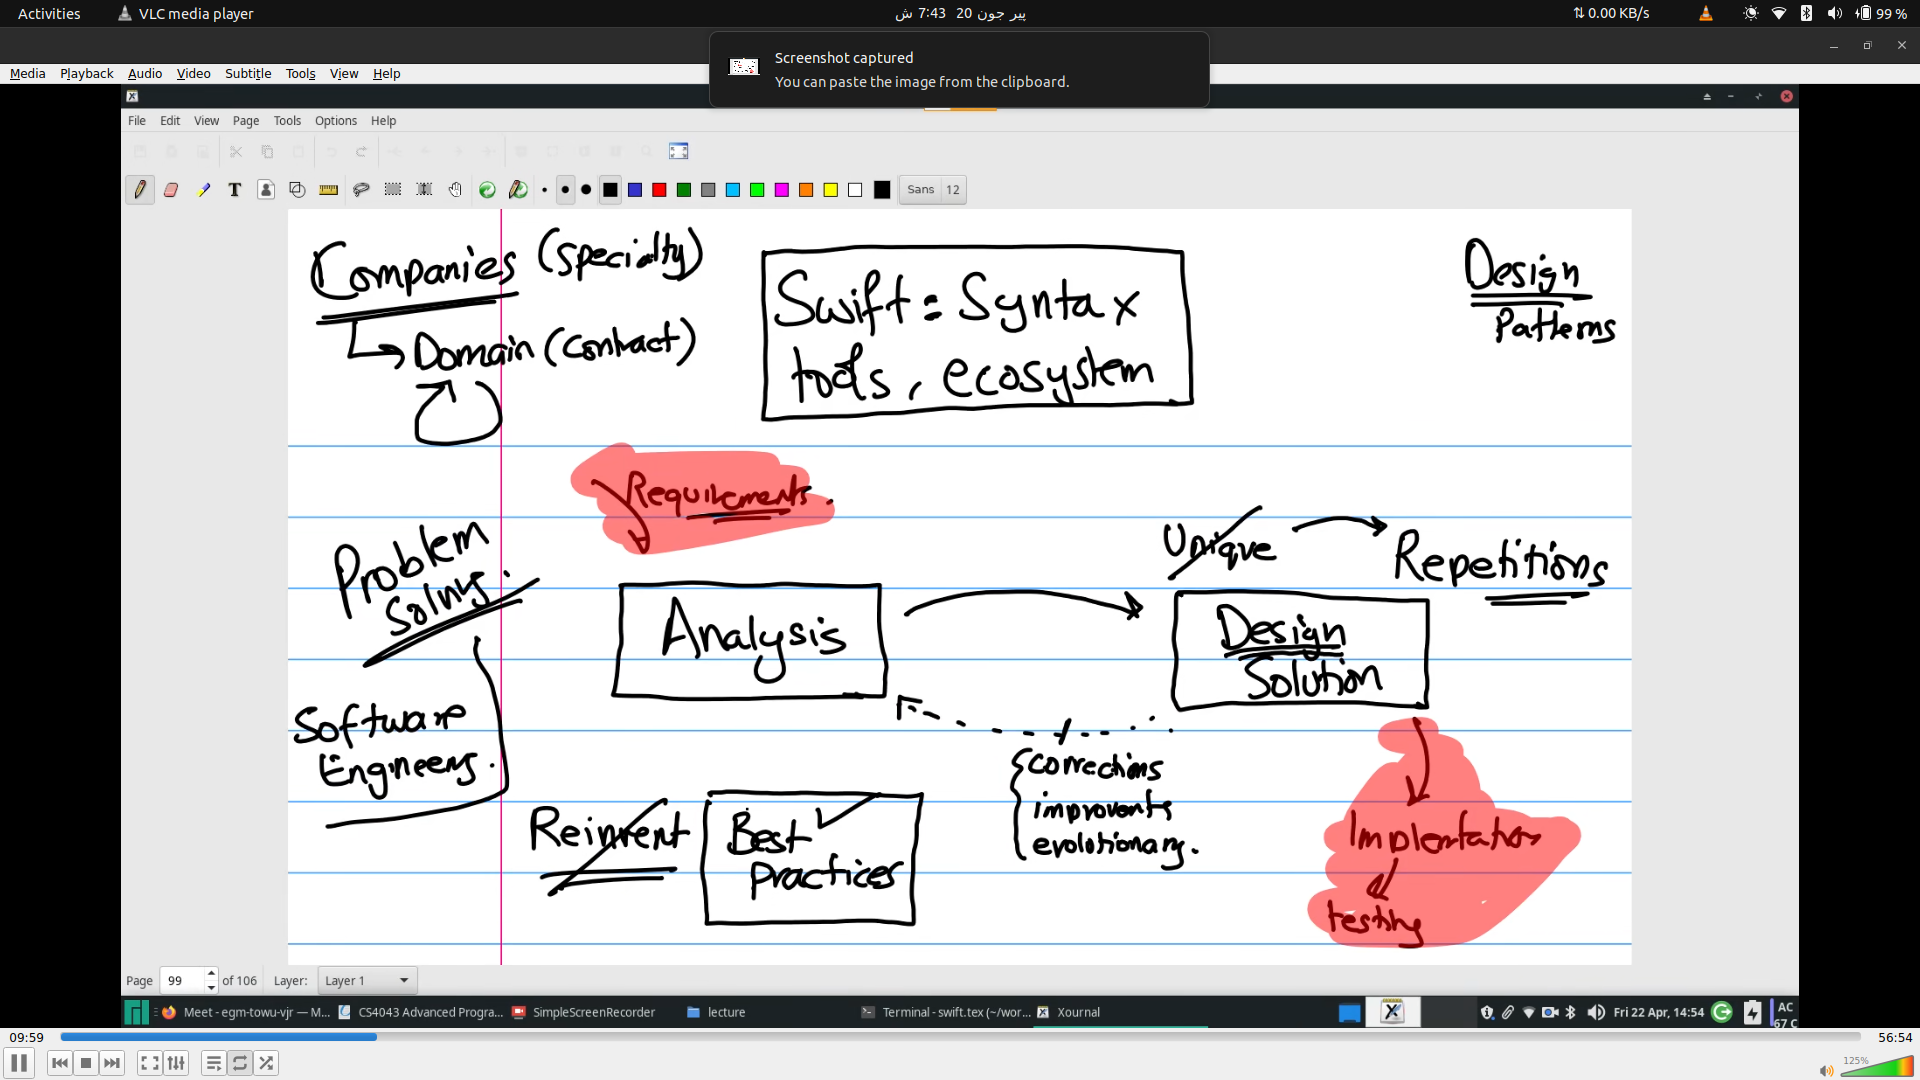 Activities
VLC media player
پیر جون 20 7:43 ش
0.00 KB/s
99 %
Screenshot captured
You can paste the image from the clipboard.
Media Playback Audio Video Subtitle Tools View Help
File Edit View Page Tools Options Help
Sans 12
Companies (specialty)
Domain (contract)
Swift: Syntax
tools, ecosystem
Design
Patterns
Requirements.
Problem
Solving.
Unique
Repetitions
Analysis
Design
Solution
Software
Engineers.
corrections
improvents
evolutionary.
Reinvent
Best
Practices
Implentation
testing
Page 99 of 106 Layer: Layer 1
Meet - egm-towu-vjr — M...
CS4043 Advanced Progra...
SimpleScreenRecorder
lecture
Terminal - swift.tex (~/wor...
Xournal
Fri 22 Apr, 14:54
AC
67 C
09:59
56:54
125%